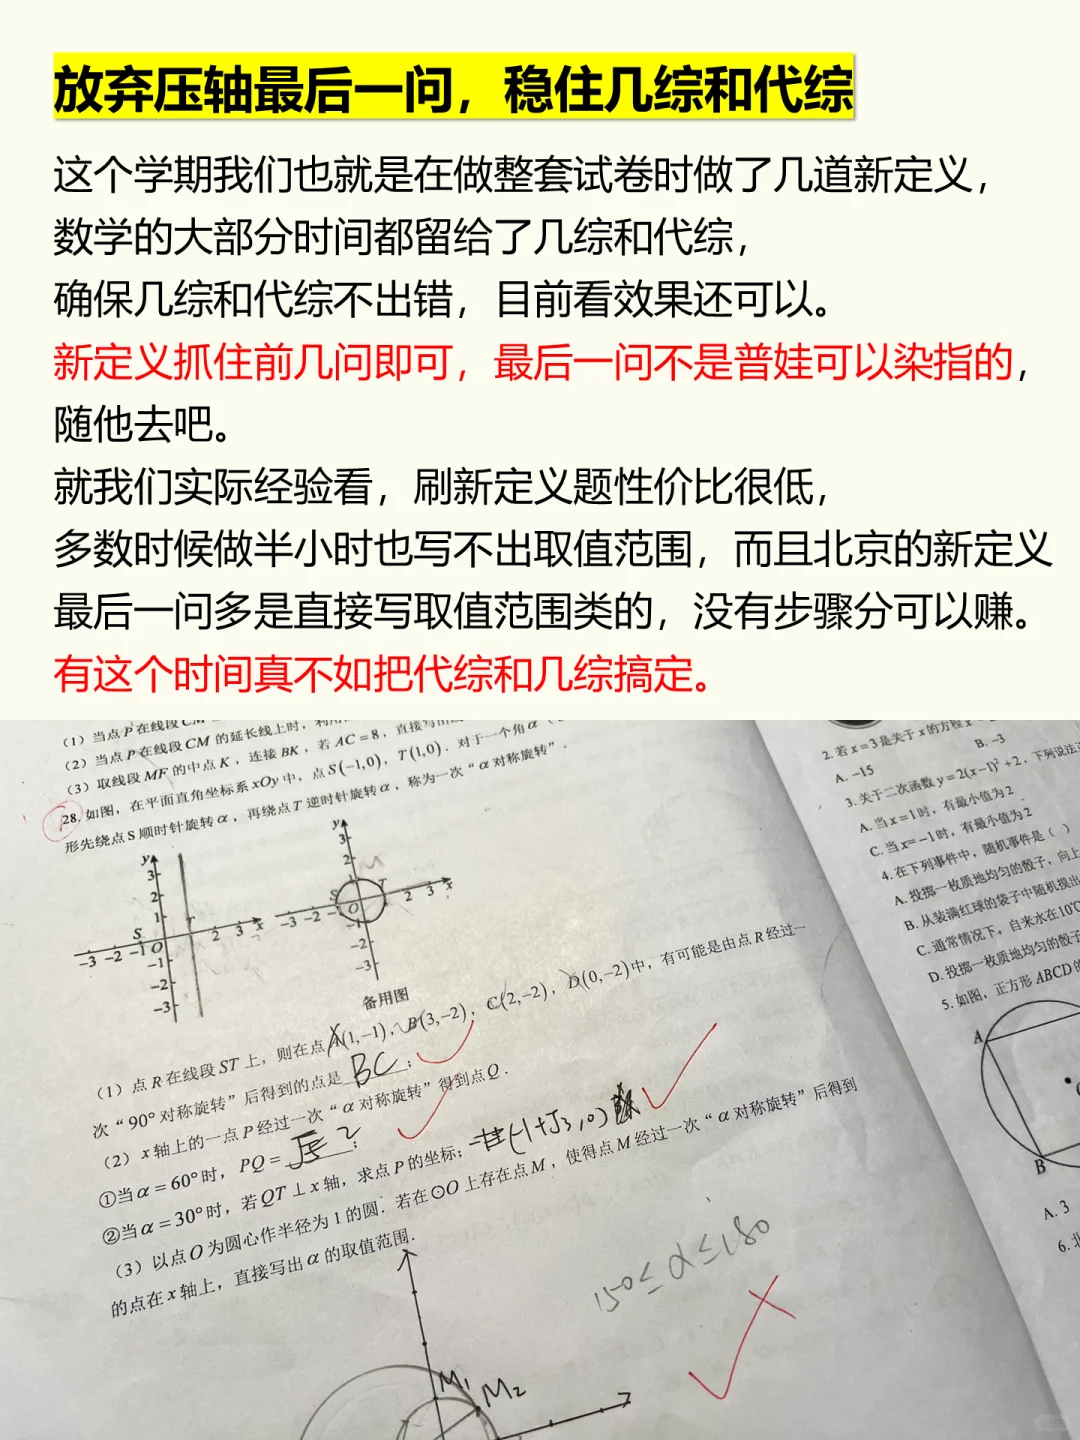 放弃压轴最后一问，稳住几综和代综
这个学期我们也就是在做整套试卷时做了几道新定义，
数学的大部分时间都留给了几综和代综，
确保几综和代综不出错，目前看效果还可以。
新定义抓住前几问即可，最后一问不是普娃可以染指的，
随他去吧。
就我们实际经验看，刷新定义题性价比很低，
多数时候做半小时也写不出取值范围，而且北京的新定义
最后一问多是直接写取值范围类的，没有步骤分可以赚。
有这个时间真不如把代综和几综搞定。
（1）当点P在线段CM
（2）当点P在线段CM的延长线上时，
（3）取线段MF的中点K，连接BK，若AC=8，直接写出
28.如图，在平面直角坐标系xOy中，点S(−1,0)，T(1,0)．对于一个角α
形先绕点S顺时针旋转α，再绕点T逆时针旋转α，称为一次“α对称旋转”．
y
3
2
1
S
−3 −2 −1 O 2 3 x
−1
−2
−3
y
3
2
S T
−3 −2 O 2 3 x
−1
−2
−3
备用图
（1）点R在线段ST上，则在点A(1,−1)，B(3,−2)，C(2,−2)，D(0,−2)中，有可能是由点R经过一
次“90°对称旋转”后得到的点是BC；
（2）x轴上的一点P经过一次“α对称旋转”得到点Q．
①当α=60°时，PQ= 2；
②当α=30°时，若QT⊥x轴，求点P的坐标；(−1+√3,0)
（3）以点O为圆心作半径为1的圆．若在⊙O上存在点M，使得点M经过一次“α对称旋转”后得到
的点在x轴上，直接写出α的取值范围．
150≤α≤180
M1
M2
2.若x=3是关于x的方程
A.−15 B.−3
3.关于二次函数y=2(x−1)²+2，下列说法正
A.当x=1时，有最小值为2
C.当x=−1时，有最小值为2
4.在下列事件中，随机事件是（ ）
A.投掷一枚质地均匀的骰子，向上
B.从装满红球的袋子中随机摸出
C.通常情况下，自来水在10℃
D.投掷一枚质地均匀的骰子
5.如图，正方形ABCD的
A
B
A.3
6.